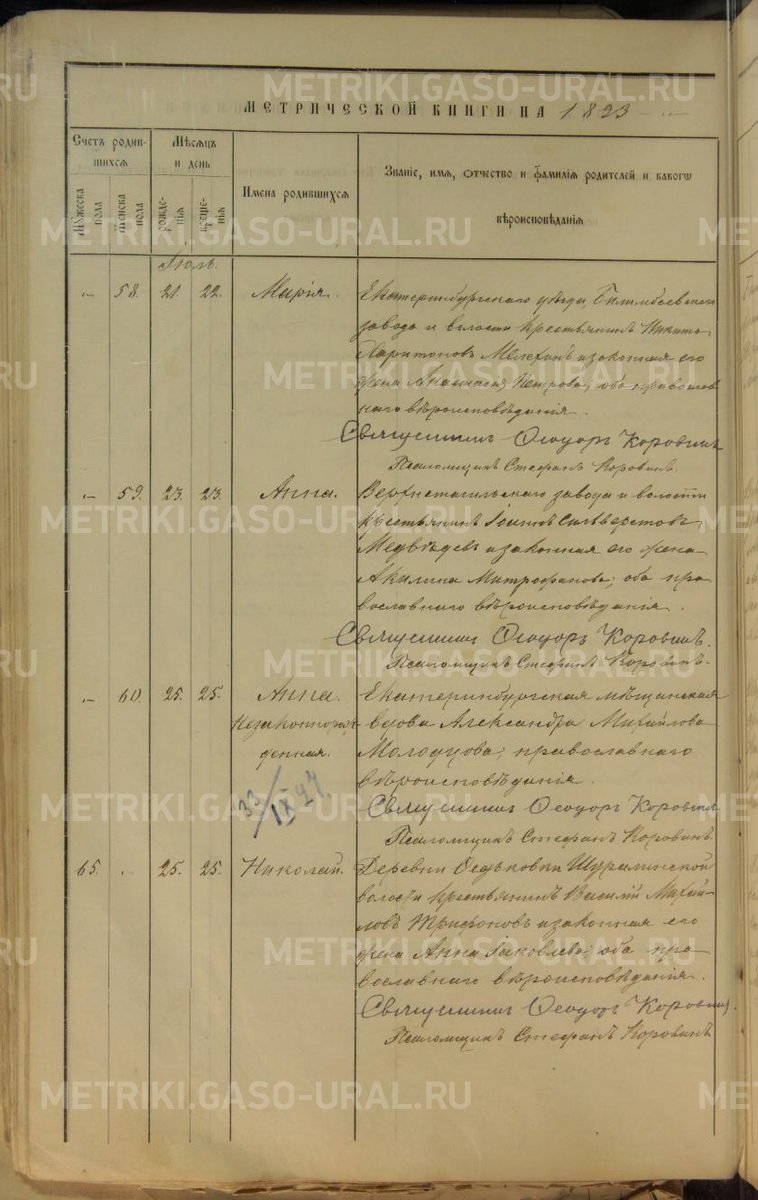 МЕТРИЧЕСКОЙ КНИГИ НА 1893
Счетъ родив-
шихся
Мѣсяцъ
и день
Имена родившихся
Званіе, имя, отчество и фамилія родителей и какогѡ
вѣроисповѣданія
Мужеска
пола
Женска
пола
рожде-
нія
креще-
нія
Іюль.
58. 21. 22. Марія.
Екатеринбургскаго уѣзда, Билимбаевскаго
завода и волости крестьянинъ Никита
Харитоновъ Мелехинъ и законная его
жена Анастасія Петрова; оба православ
наго вѣроисповѣданія.
Священникъ Ѳеодоръ Коровинъ
Псаломщикъ Стефанъ Коровинъ.
59. 23. 23. Анна.
Верхнетагильскаго завода и волости
крестьянинъ Іоаннъ Сильверстовъ
Медвѣдевъ и законная его жена
Акилина Митрофанова; оба пра
вославнаго вѣроисповѣданія.
Священникъ Ѳеодоръ Коровинъ.
Псаломщикъ Стефанъ Коровинъ.
60. 25. 25. Анна.
Незаконнорож
денная.
Екатеринбургская мѣщанская
вдова Александра Михайлова
Молодцова; православнаго
вѣроисповѣданія.
33/IX 94
Священникъ Ѳеодоръ Коровинъ
Псаломщикъ Стефанъ Коровинъ.
65. 25. 25. Николай.
Деревни Ѳедьковки Шуралинской
волости крестьянинъ Василій Михай
ловъ Трифоновъ и законная его
жена Анна Іаковлева; оба пра
вославнаго вѣроисповѣданія.
Священникъ Ѳеодоръ Коровинъ.
Псаломщикъ Стефанъ Коровинъ
METRIKI.GASO-URAL.RU